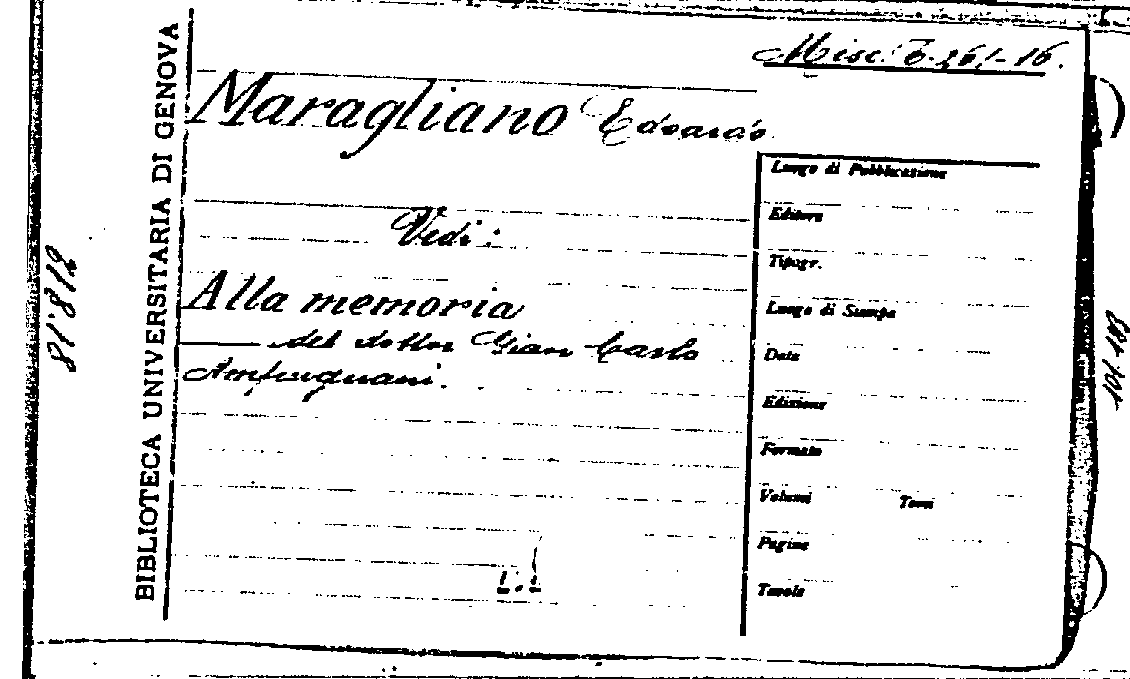 Misc. B. 261-16.
Maragliano Edoardo
Vedi:
Alla memoria
del dottor Gian Carlo
Ampugnani.
Luogo di Pubblicazione
Editore
Tipogr.
Luogo di Stampa
Data
Edizione
Formato
Volumi Tomi
Pagine
Tavole
BIBLIOTECA UNIVERSITARIA DI GENOVA
81.8.18